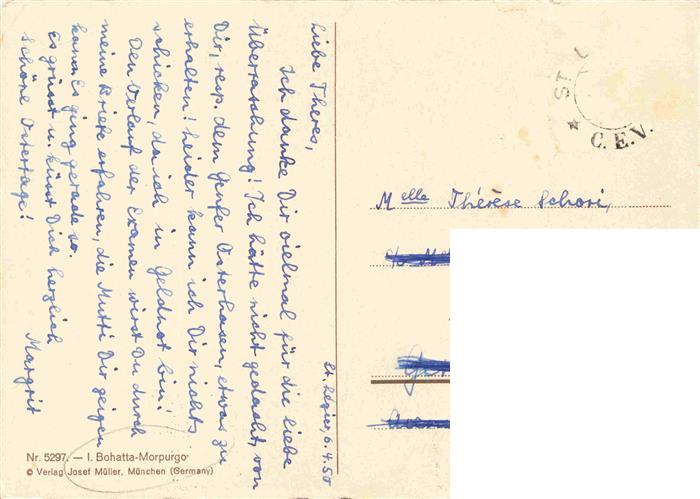 St. Légier, 6.4.50
Liebe Theres,
Ich danke Dir vielmal für die liebe
Überraschung! Ich hätte nicht gedacht, von
Dir, resp. dem Genfer Osterhasen, etwas zu
erhalten! Leider kann ich Dir nichts
schicken, da ich in Geldnot bin!
Den Verlauf der Examen wirst Du durch
meine Briefe erfahren, die Mutti Dir zeigen
kann. Es ging gerade so.
Es grüsst u. küsst Dich herzlich
Margrit
Schöne Ostertage!
ST
★ C.E.V.
Melle Thérèse Schori,
Nr. 5297. — I. Bohatta-Morpurgo
© Verlag Josef Müller, München (Germany)